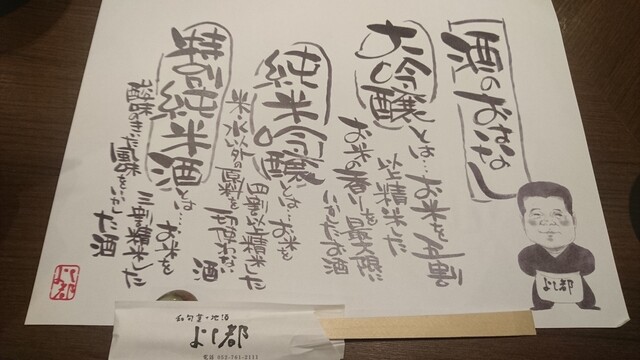 酒のおはなし
大吟醸とは…お米を五割
以上精米した
お米の香りを最大限に
いかしたお酒
純米吟醸とは…お米を
四割以上精米した
米・水以外の原料を
使わない
酒
特別純米酒とは…お米を
三割精米した
山味のきいた風味をいかし
た酒
よし都
よし都
和旬宴・地酒
よし都
電話 052-761-2111